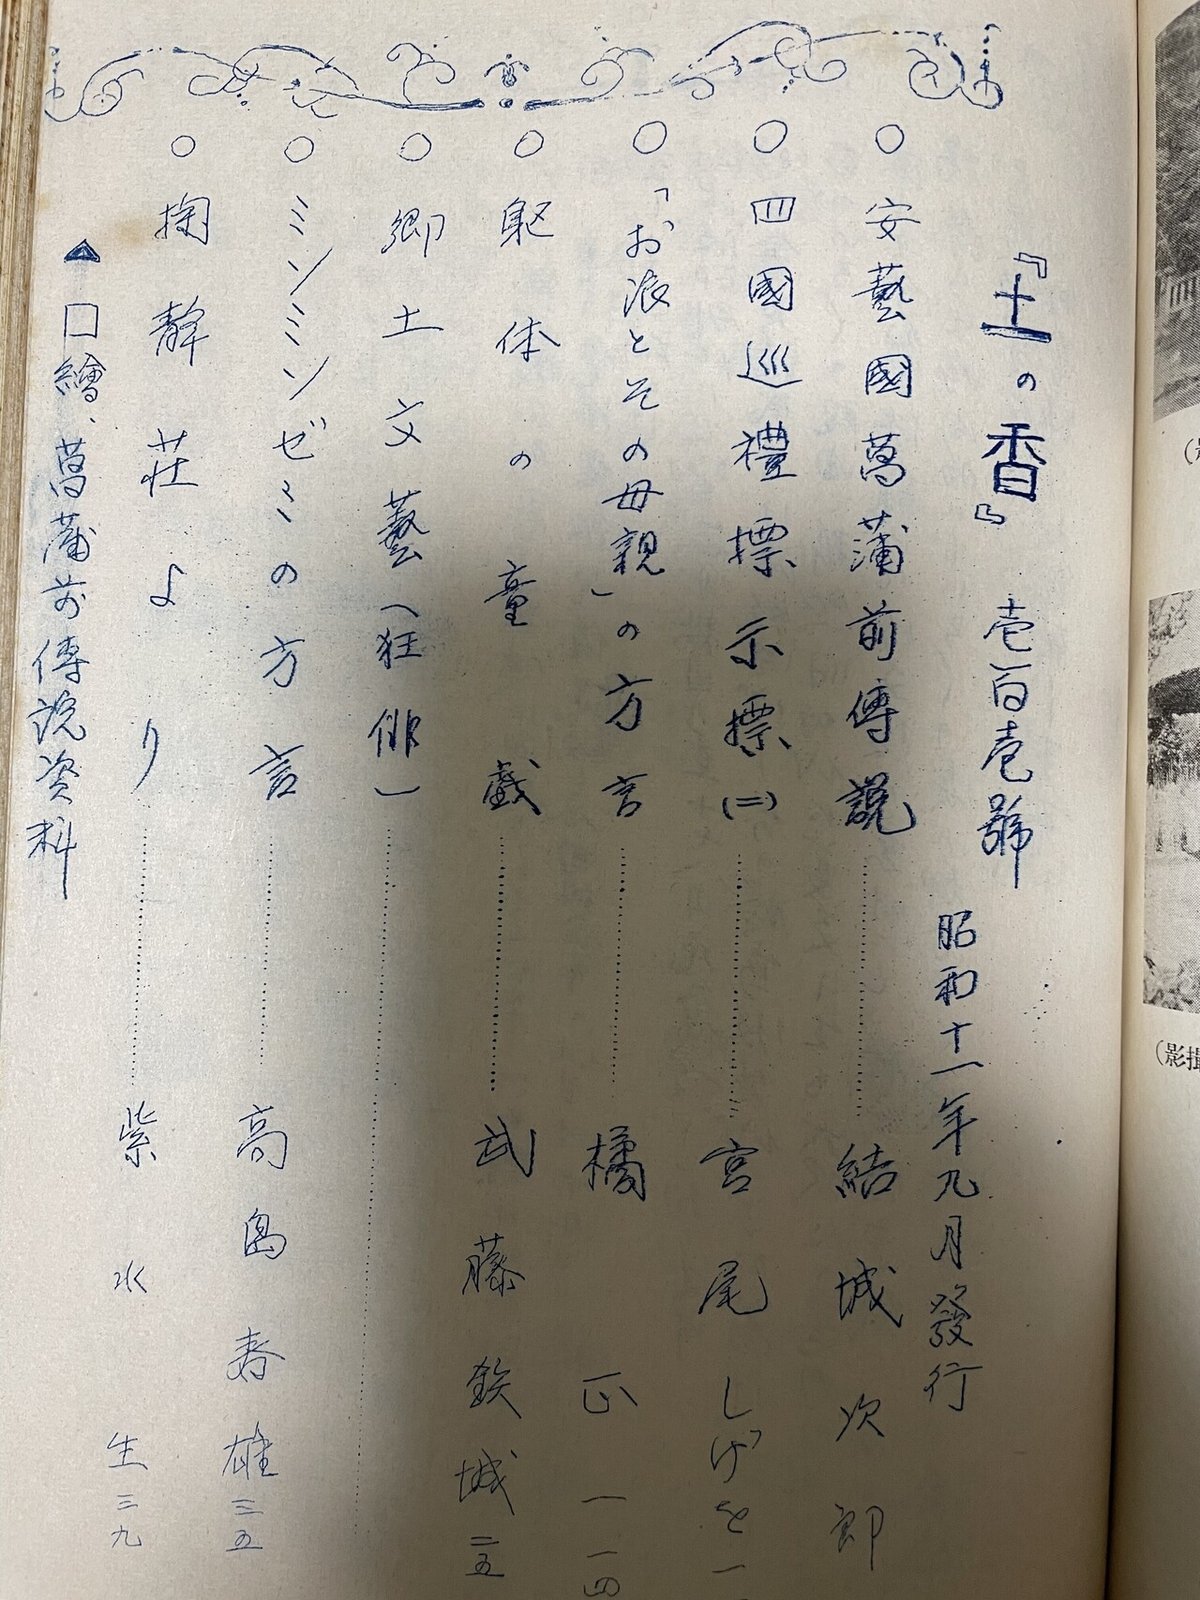 『土の香』 壱百壱號
昭和十一年九月發行
○安藝國菖蒲前傳説 結城次郎
○四國巡禮標示標(二) 宮尾しげを 一
○「お浪とその母親」の方言 橘正一 一四
○躯体の童戯 武藤鉄城 二五
○郷土文藝(狂俳)
○ミンミンゼミの方言 高島春雄 三五
○掬靜荘より 紫水生 三九
▲口繪、菖蒲前傳説資料
(影撮